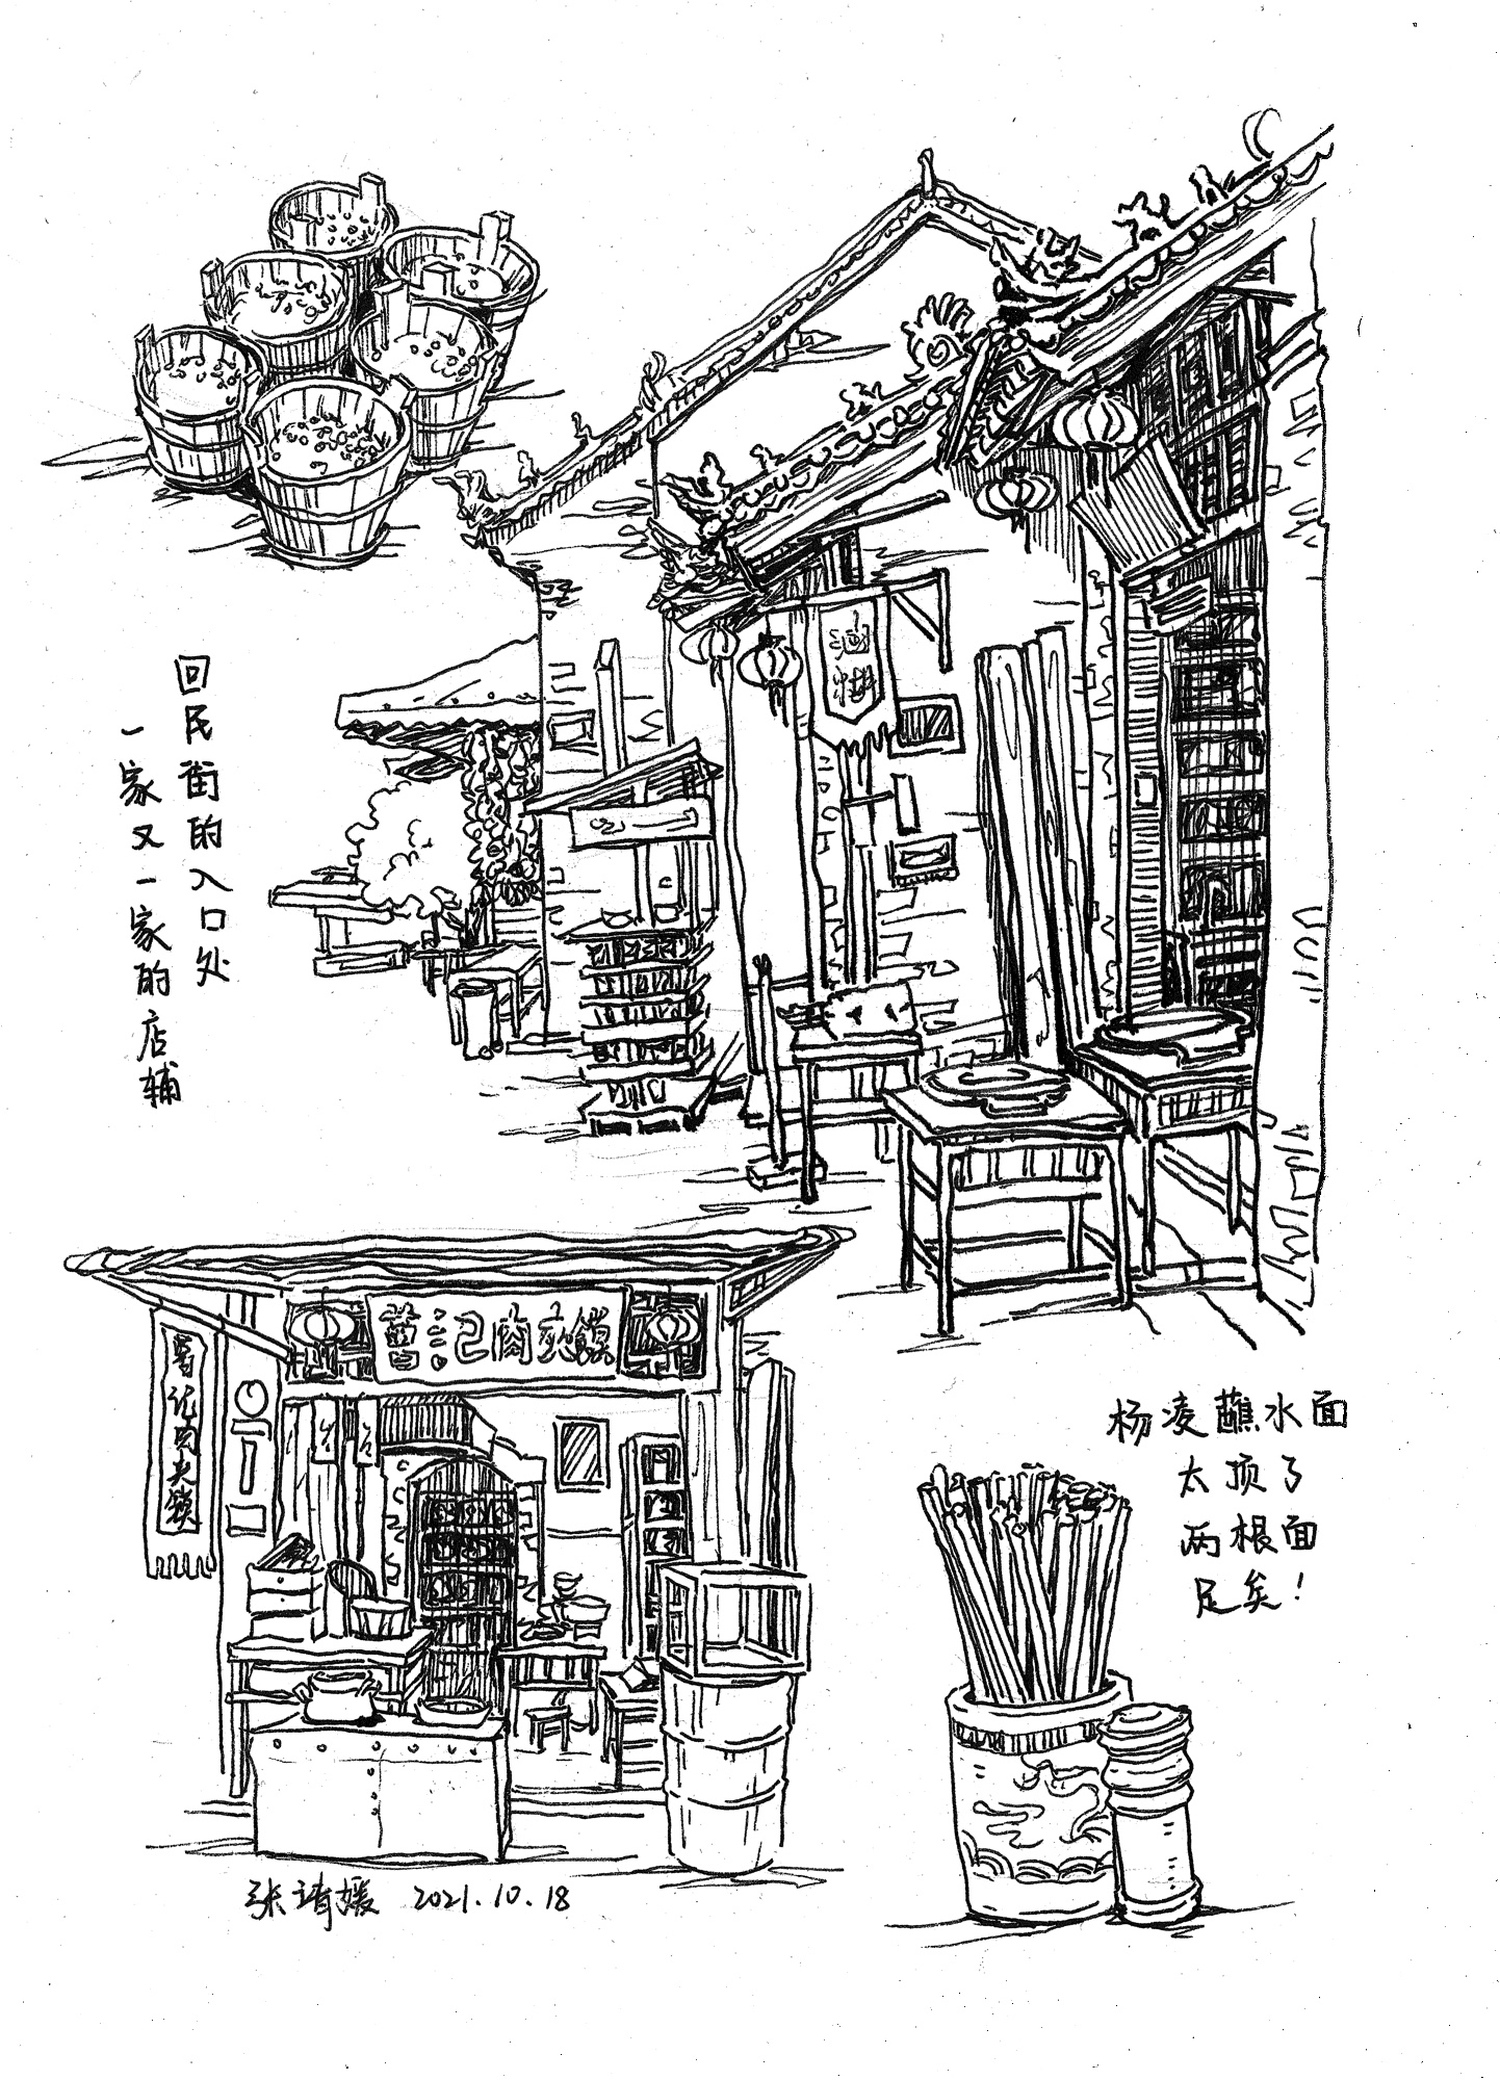 回民街的入口处
一家又一家的店辅
曹記肉夾饃
曹记肉夹馍
杨凌蘸水面
太顶了
两根面
足矣！
张靖媛 2021.10.18